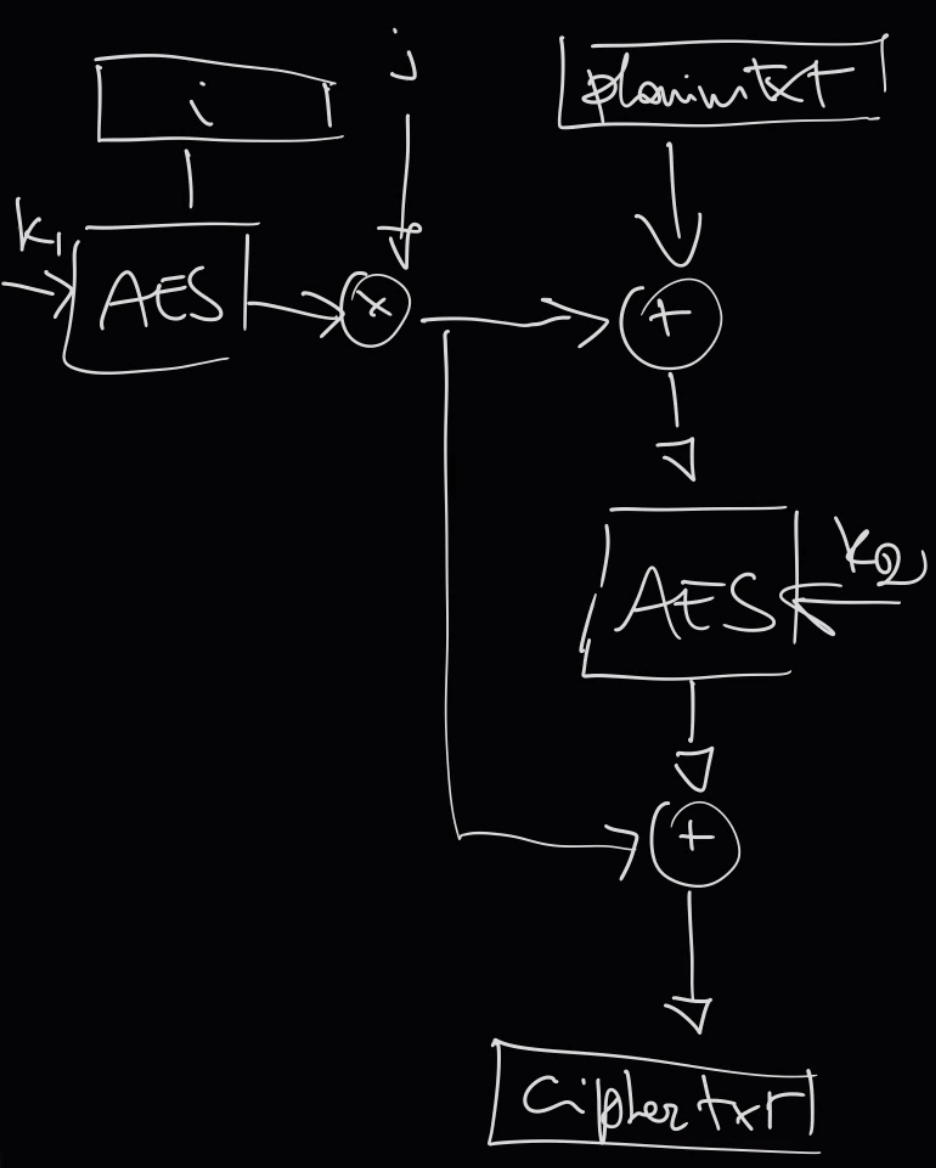 i
j
plainimtxt
k1
AES
×
+
AES
k2
+
Ciphertxt